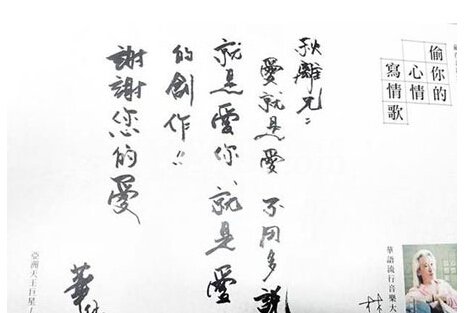 偷你的
心情
寫情歌
華語流行音樂大
林
秋離兄：
愛就是愛 不用多說
就是愛你 就是愛
的創作!!
謝謝您的愛
華
亞洲天王巨星